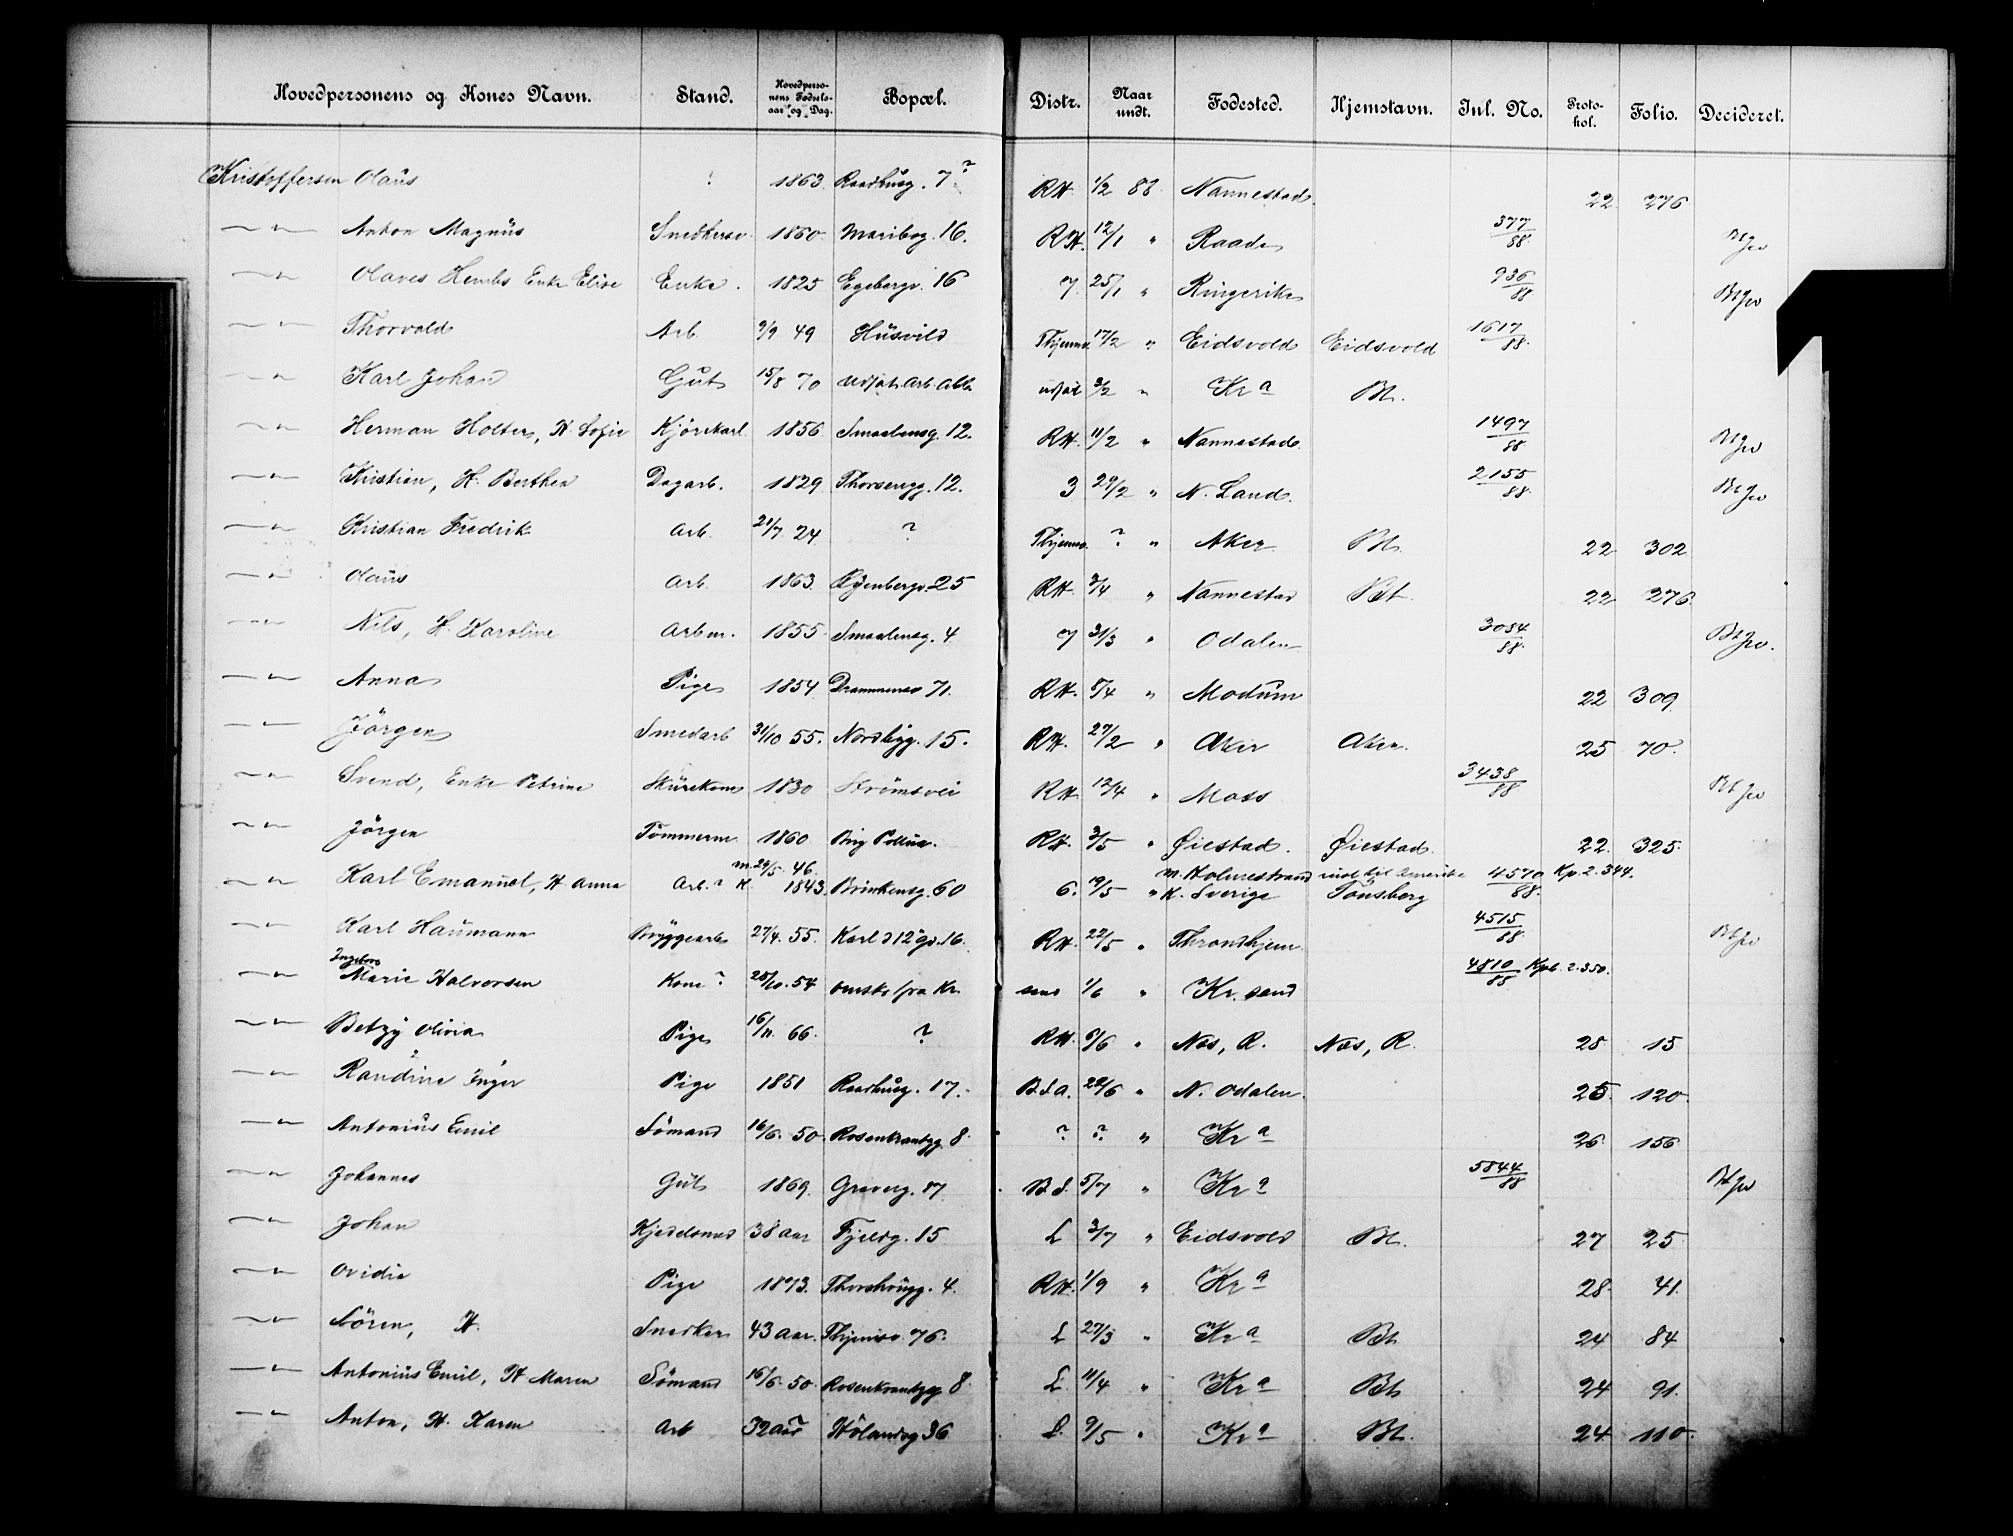 Hovedpersonens og Kones Navn. Stand. Hovedpersonens Fødselsaar og Dag. Bopæl. Distr. Naar undt. Fødested. Hjemstavn. Inl. No. Protokol. Folio. Decideret.
Kristoffersen Olaus ? 1863 Raadhusg. 7 ? RH. 1/2 88 Nannestad 22 276
—"— Anton Magnus Snedkersv. 1860 Maribog. 16. RH. 12/1 " Raade 377/88
—"— Olaves Hembs Enke Elise Enke. 1825 Egebergv. 16 7 25/1 " Ringerike 936/88
—"— Thorvald Arb. 9/9 49 Husvild Thjemsv. 17/2 " Eidsvold Eidsvold 1617/88
—"— Karl Johan Gut 15/8 70 3/2 " Kra Bt.
—"— Herman Holter, H. Sofie Kjørekarl 1856 Smaalensg. 12. RH. 11/2 " Nannestad 1497/88
—"— Kristian, H. Berthea Dagarb. 1829 12. 3 29/2 " N. Land. 2155/88
—"— Kristian Fredrik Arb. 21/7 24 ? Thjemsv. ? " Aker Bt. 22 302
—"— Olaus Arb. 1863 25 RH. 3/4 " Nannestad Bt. 22 276
—"— Nils, H. Karoline Arbm. 1855 Smaalensg. 4 7 31/3 " Odalen 3084/88
—"— Anna Pige 1854 Drammensv 71. RH. 5/4 " Modum 22 309
—"— Jörgen Smedarb 31/10 55. Nordbyg. 15. RH. 27/2 " Aker Aker. 25 70
—"— Svend, Enke Petrine Skurekone 1830 Strömsvei RH. 12/4 " Moss 3438/88
—"— Jörgen Tömmerm 1860 Brig RH. 3/5 " Øiestad. Øiestad. 22. 325
—"— Karl Emanuel, H Anna Arb. ? m. 29/5 46. H. 1843 Brinkensg. 60 6. 19/5 " m. Holmestrand K. Sverige Tönsberg 4570/88 Kp. 2. 344.
—"— Karl Haumann Bryggearb 27/4. 55. Karl d 12 gd. 16. RH. 22/5 " Throndhjem 4515/88
—"— Ingeborg Marie Halvorsen Kone ? 25/10. 54 1/6 " Kr. sand 4810/88 2. 350.
—"— Betzy Olivia Pige 16/11. 66. ? RH. 6/6 " Næs, R. Næs, R. 25 15
—"— Randine Inger Pige 1851 Raadhusg. 17. B.S.A. 22/6 " N. Odalen. 25 120
—"— Antonius Emil Sömand 16/6. 50. Rosenkrantzg. 8. ? ? " Kra 26. 156
—"— Johannes Gut 1869. Graverg. 17 B.S. 5/7 " Kra 5844/88
—"— Johan 38 aar Fjeldg. 15 L 3/7 " Eidsvold Bt. 27 25
—"— Ovidia Pige 1873. Thorshaugg. 4. RH. 1/9 " Kra 28 41.
—"— Sören, H. Snedker 43 aar. Thjemsv. 76. L 27/3 " Kra Bt 24 84
—"— Antonius Emil, H Maren Sömand 16/6. 50. Rosenkrantzg 8. L. 11/4 " Kra Bt 24 91.
—"— Anton, H. Karen Arb 32 aar Hölandsg 36 L. 9/5 " Kra Bt. 24 110.